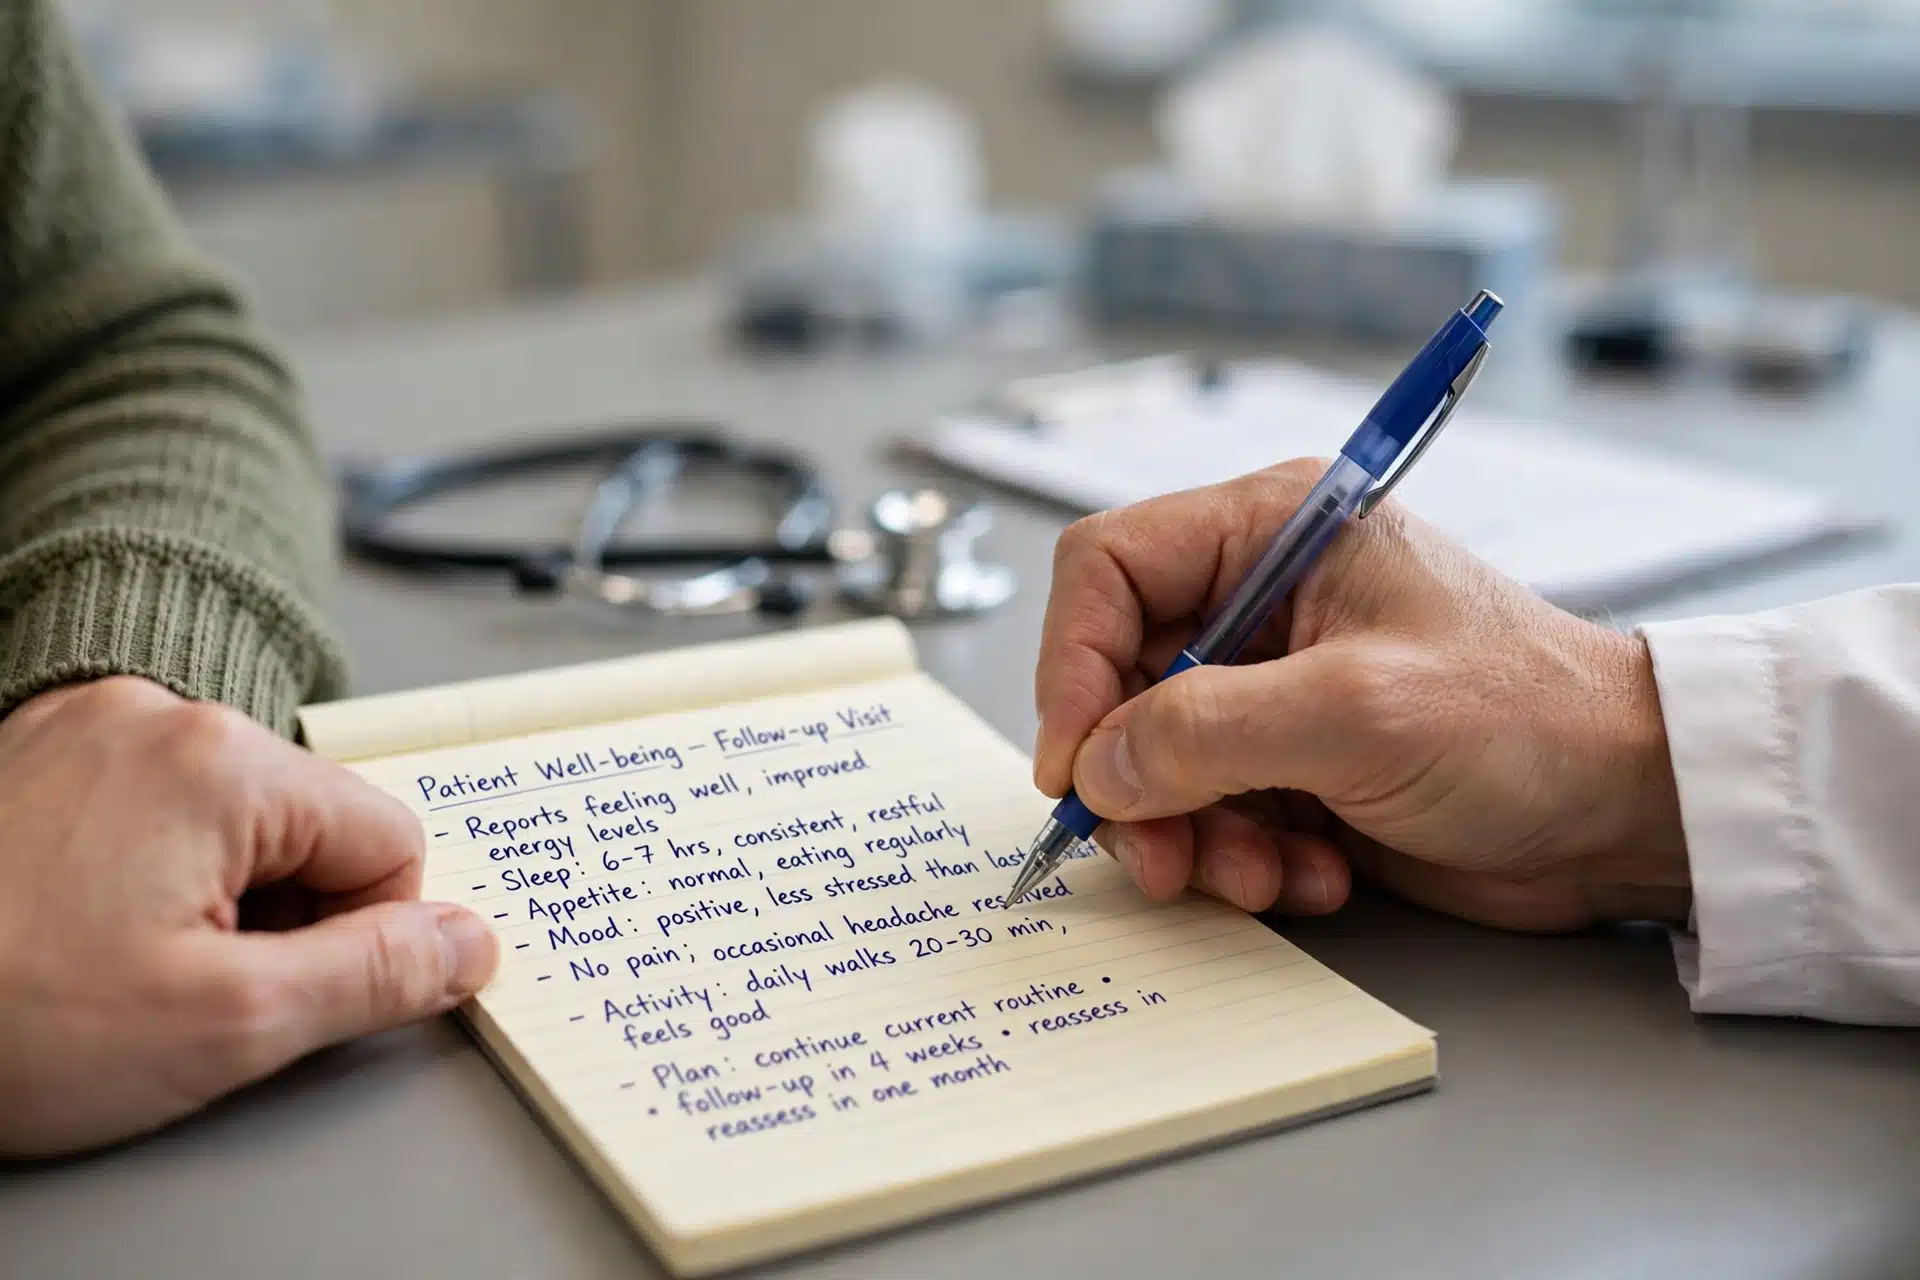 Patient Well-being – Follow-up Visit
- Reports feeling well, improved
energy levels
- Sleep: 6-7 hrs, consistent, restful
- Appetite: normal, eating regularly
- Mood: positive, less stressed than last
- No pain; occasional headache resolved
- Activity: daily walks 20-30 min,
feels good
- Plan: continue current routine •
• follow-up in 4 weeks • reassess in
reassess in one month